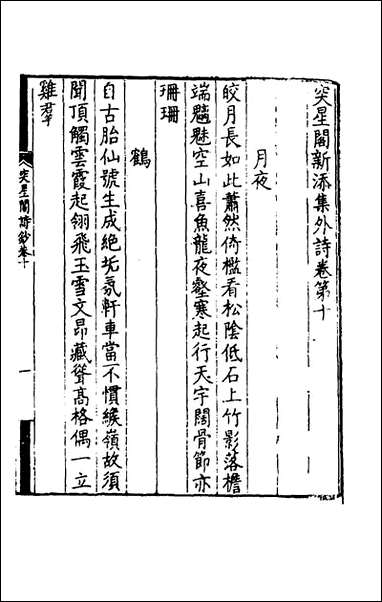 突星閣新添集外詩卷第十
月夜
皎月長如此蕭然倚檻看松陰低石上竹影落檐
端魑魅空山喜魚龍夜壑寒起行天宇闊骨節亦
珊珊
鶴
自古胎仙號生成絕垢氛軒車當不慣緱嶺故須
聞頂觸雲霞起翎飛玉雪文昂藏聳高格偶一立
雞羣
突星閣詩鈔卷十
一